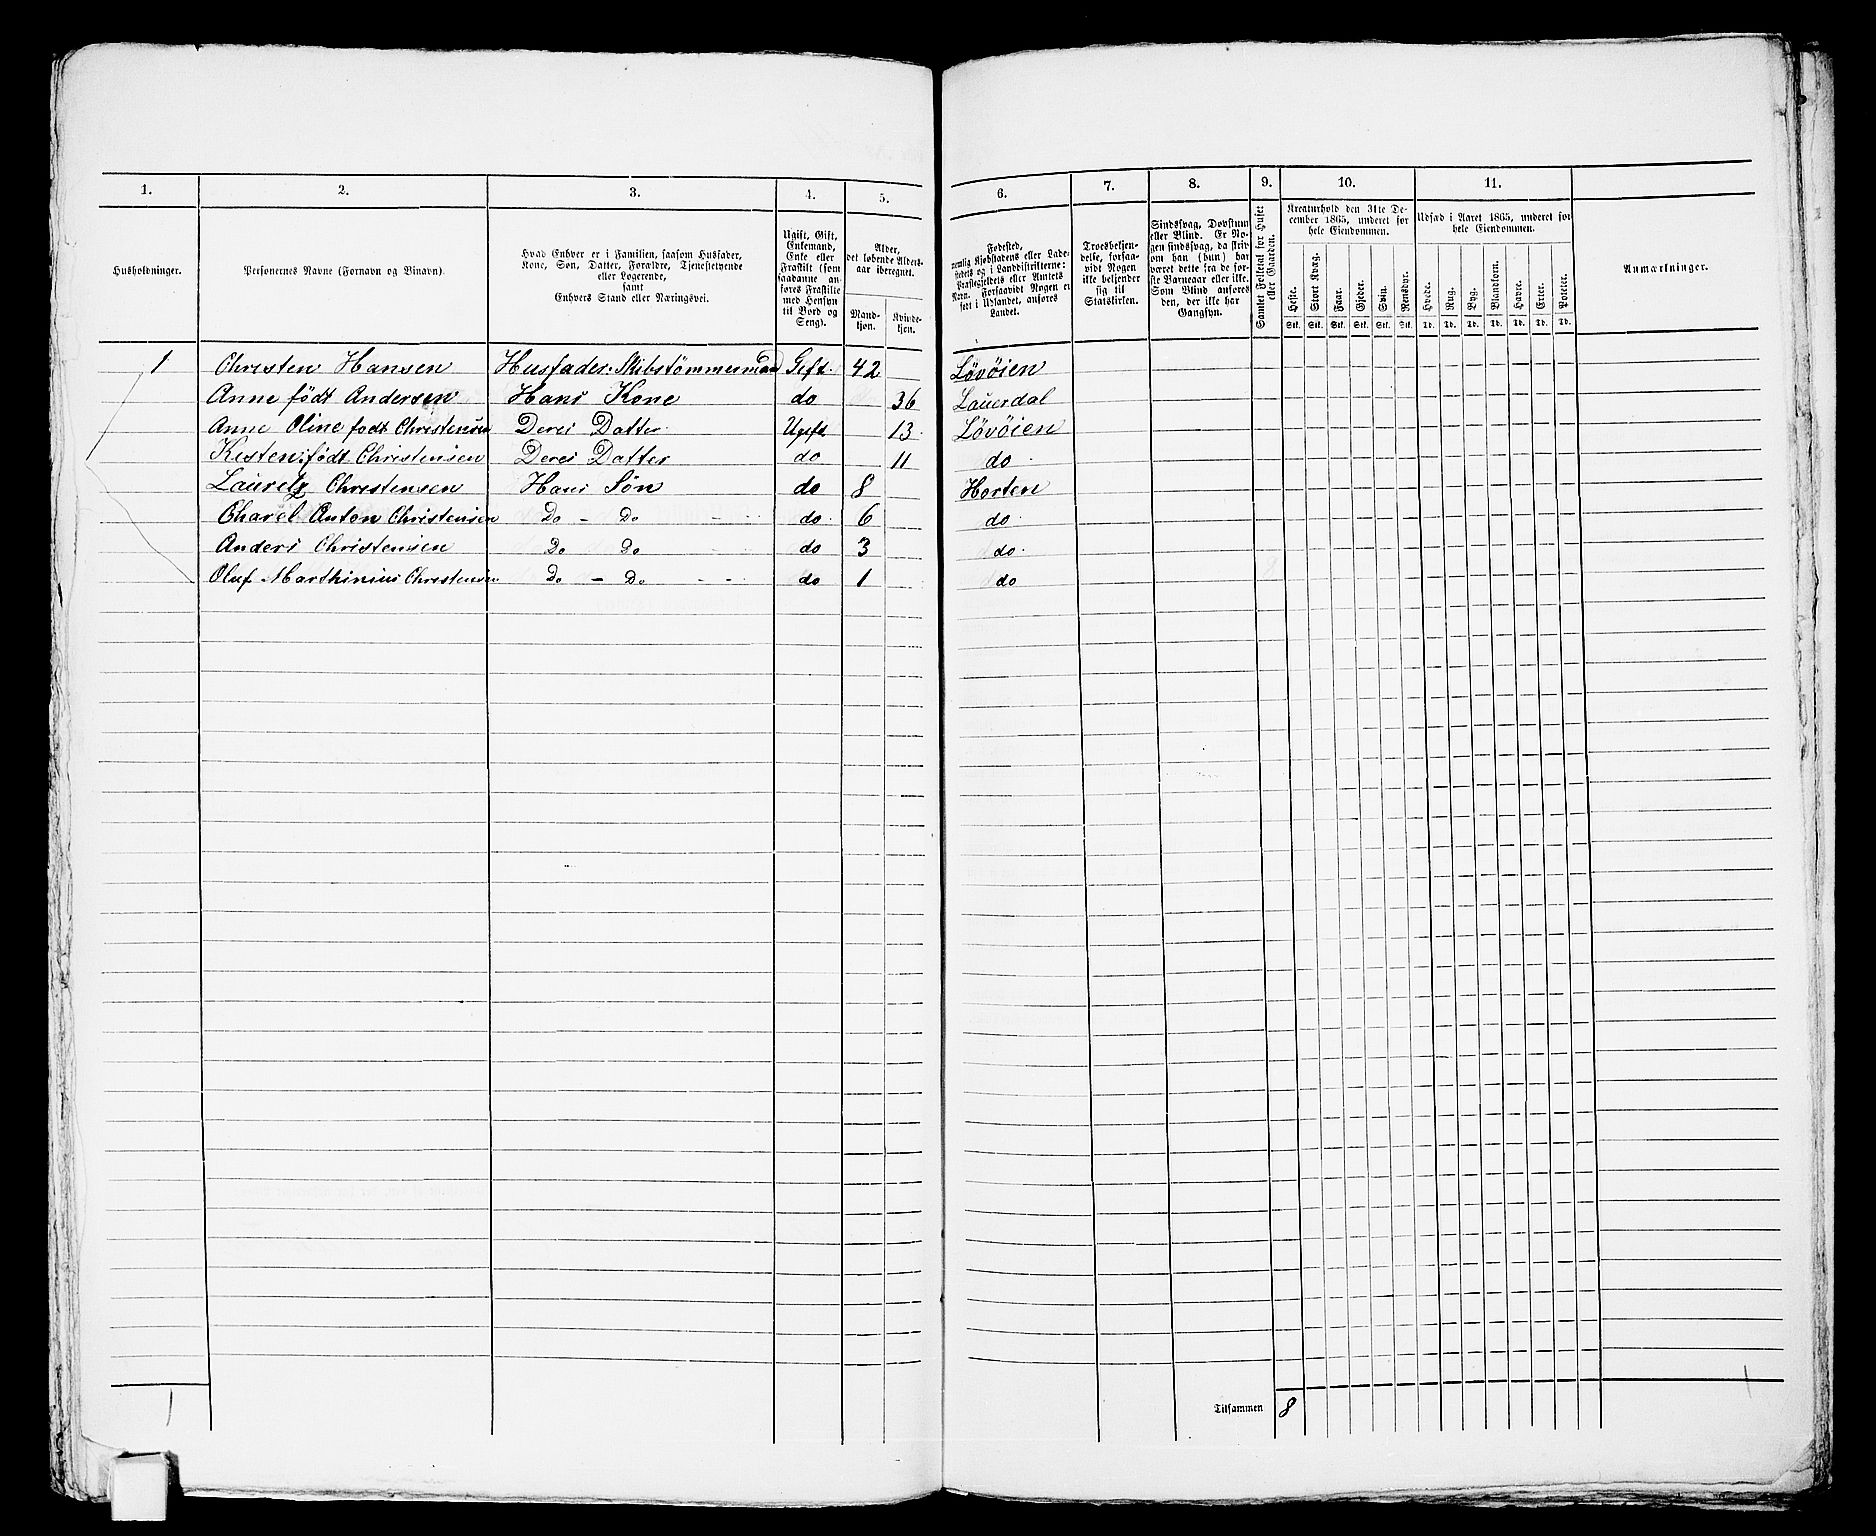 1. 2. 3. 4. 5. 6. 7. 8. 9. 10. 11.
Husholdninger.
Personernes Navne (Fornavn og Binavn).
Hvad Enhver er i Familien, saasom Husfader,
Kone, Søn, Datter, Forældre, Tjenestetyende
eller Logerende,
samt
Enhvers Stand eller Næringsvei.
Ugift, Gift,
Enkemand,
Enke eller
Fraskilt (som
saadanne an-
føres Fraskilte
med Hensyn
til Bord og
Seng).
Alder,
det løbende Alders-
aar iberegnet.
Mand-
kjøn.
Kvinde-
kjøn.
Fødested,
nemlig Kjøbstadens eller Lade-
stedets og i Landdistrikterne:
Præstegjeldets eller Amtets
Navn. Forsaavidt Nogen er
født i Udlandet, anføres
Landet.
Troesbekjen-
delse, forsaa-
vidt Nogen
ikke bekjender
sig til
Statskirken.
Sindssvag, Døvstum
eller Blind. Er No-
gen sindssvag, da skriv
om han (hun) har
været dette fra de før-
ste Barneaar eller ikke.
Som Blind anføres
den, der ikke har
Gangsyn.
Samlet Folketal for Huset
eller Gaarden.
Kreaturhold den 31te De-
cember 1865, underet for
hele Eiendommen.
Heste. Stort Kvæg. Faar. Gjeder. Svin. Rensdyr.
Stk. Stk. Stk. Stk. Stk. Stk.
Udsæd i Aaret 1865, underet for
hele Eiendommen.
Hvede. Rug. Byg. Blandkorn. Havre. Erter. Poteter.
Td. Td. Td. Td. Td. Td. Td.
Anmærkninger.
1 Christen Hansen Husfader. Skibstømmermand Gift. 42 Løvøien
Anne født Andersen Hans Kone do 36 Lauerdal
Anne Oline født Christensen Deres Datter Ugift 13 Løvøien
Kisten født Christensen Deres Datter do 11 do
Lauritz Christensen Hans Søn do 8 Horten
Charel Anton Christensen Do - Do do 6 do
Anders Christensen Do Do do 3 do
Oluf Marthinius Christensen Do - Do do 1 do
1
Tilsammen 8